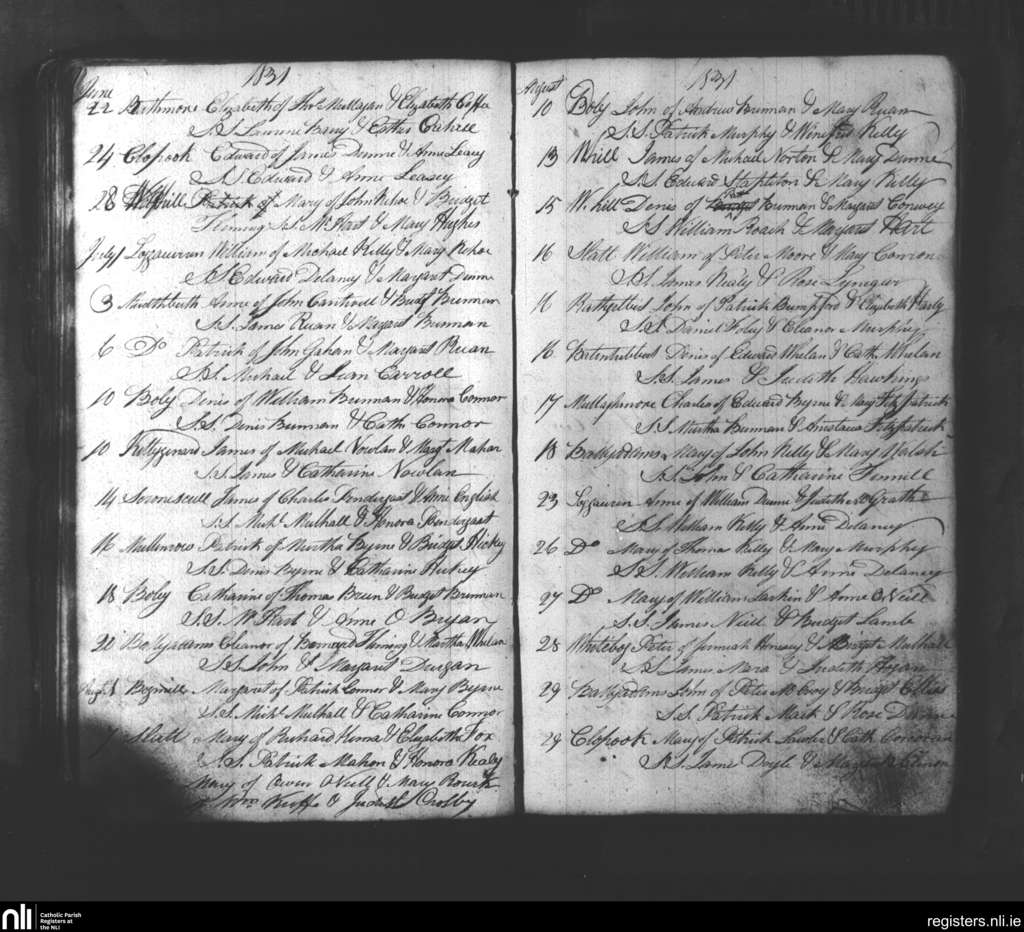 1831
June
22 Rathmore Elizabeth of Thos Mullegan & Elizabeth Coffe
S.S. Laurence Barry & Cathes Cahill
24 Clopook Edward of James Dunne & Anne Leasy
S.S. Edward & Anne Leasey
28 W. Hill Patrick of Mary of John Kehoe & Bridget
Fleming S.S. W Hart & Mary Hughes
July 1 Loggacurran William of Michael Kelly & Mary Kehoe
S.S Edward Delaney & Margaret Dunne
3 Anne of John Cantwell & Budgt Brennan
S.S. James Ruan & Margaret Brennan
6 Do Patrick of John Gahan & Margaret Ruan
S.S. Michael & Carroll
10 Boly Denis of William Brennan & Honora Connor
S.S. Denis Brennan & Cath Connor
10 James of Michael Nowlan & Margt Mahar
S.S. James & Catharine Nowlan
14 James of Charles Pendergast & Anne English
S.S. Michl Mulhall & Honora Pendergast
16 Mullenrow Patrick of Murtha Byrne & Bridget Hickey
S.S. Denis Byrne & Catharine Hickey
18 Boley Catharine of Thomas Breen & Budget Brennan
S.S. W Hart & Anne O Bryan
20 Ballyadams Eleanor of Bernard Fleming & Martha Whelan
S.S. John & Margaret Durgan
Augt 1 Margaret of Patrick Connor & Mary Byrne
S.S. Michl Mulhall & Catharine Connor
7 Slatt Mary of Richard & Elizabeth Fox
S.S. Patrick Mahon & Honora Kealy
Mary of Owen ONeill & Mary Rourk
Wm Keeffe & Judith Crolby
1831
August
10 Boly John of Andrew Brennan & Mary Ruan
S.S. Patrick Murphy & Winefred Kelly
13 Whill James of Michael Norton & Mary Dunne
S.S. Edward Stapleton & Mary Kelly
15 W. hill Denis of Brennan & Margaret Conway
S.S William Roach & Margaret Hart
16 Slatt William of Peter Moore & Mary Conron
S.S. James Nealy & Rose Lynegar
16 John of Patrick Bumpford & Elizabeth Hardy
S.S. Daniel Foley & Eleanor Murphy
16 Denis of Edward Whelan & Cath. Whelan
S.S. James & Judith Hawkins
17 Mullaghmore Charles of Edward Byrne & Mary Fitzpatrick
S.S Murtha Brennan & Anastacia Fitzpatrick
18 Ballyaddams Mary of John Kelly & Mary Walsh
S.S. John & Catharine Fennell
23 Loggacurin Anne of William Dunne & Judith McGrath
S.S William Kelly & Anne Delaney
26 Do Mary of Thomas Kelly & Mary Murphy
S.S. William Kelly & Anne Delaney
27 Do Mary of William Larkin & Anne ONeill
S.S. James Neill & Bridget Lamb
28 Whitebog Peter of Jeremiah Henesey & Bridgt Mulhall
S.S. James Nara & Judith Hogan
29 Ballyadams John of Peter McEvoy & Bridget Ellies
S.S. Patrick Mark & Rose Dunne
29 Clopook Mary of Patrick Lawler & Cath Corcoran
S.S. James Doyle &
nli Catholic Parish
Registers at
the NLI
registers.nli.ie